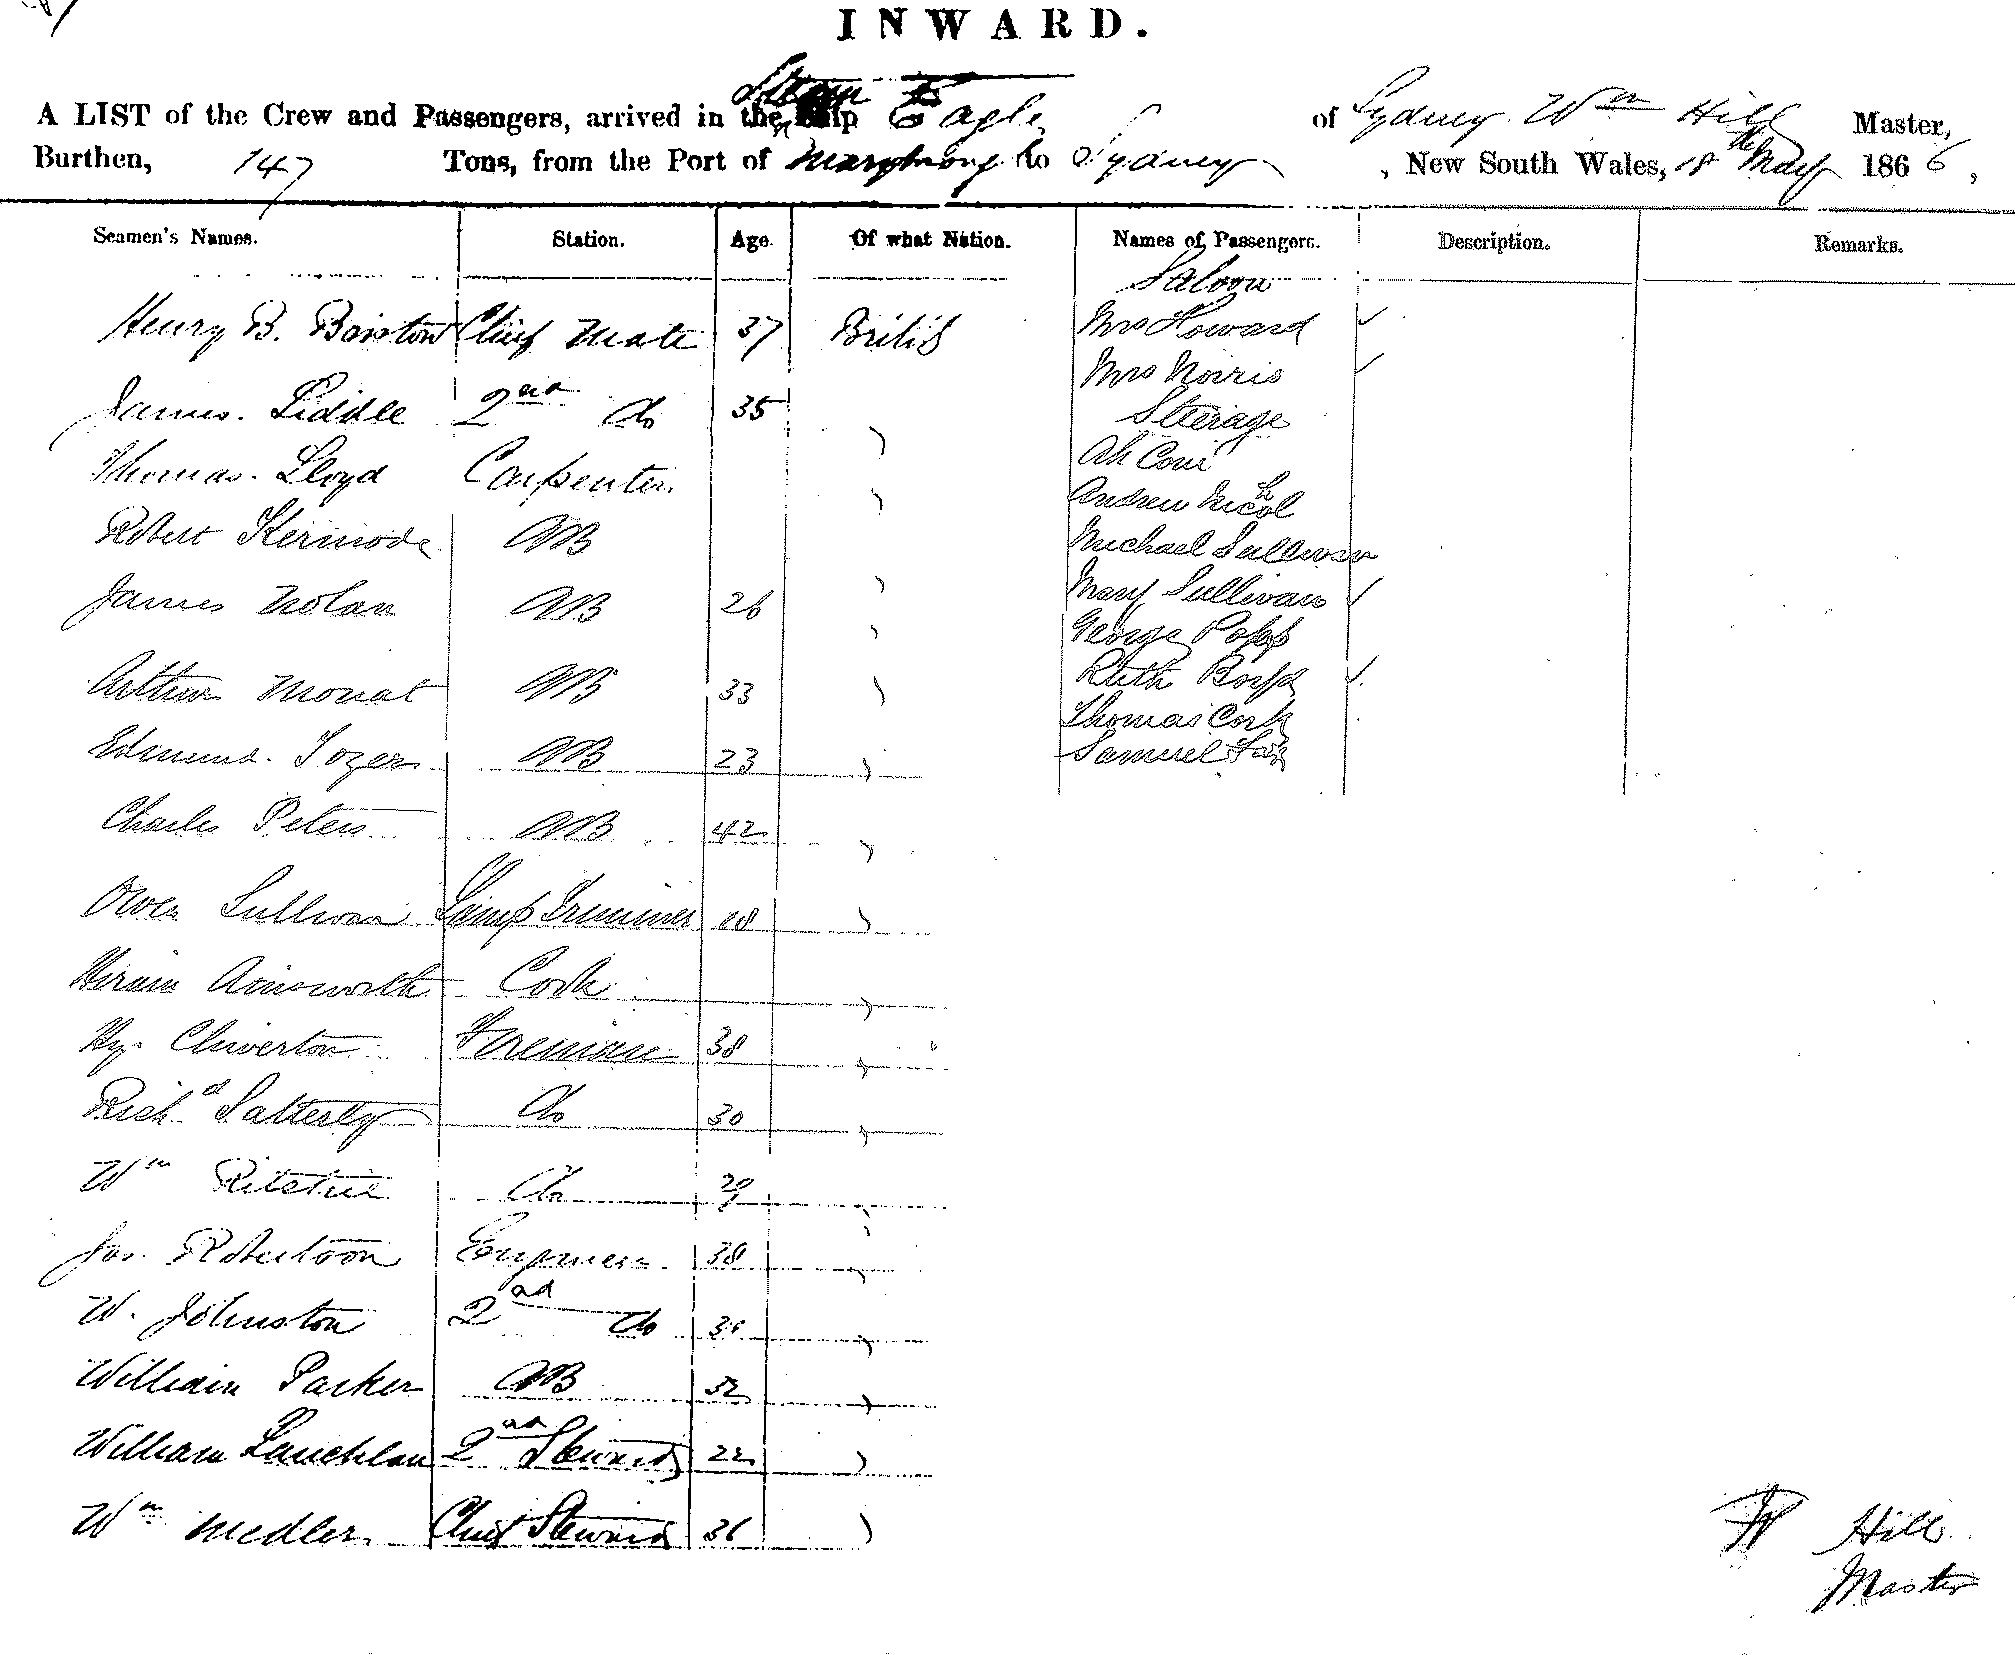 INWARD.
A LIST of the Crew and Passengers, arrived in the Steam Ship Eagle of Sydney Wm Hill Master,
Burthen, 147 Tons, from the Port of to Sydney, New South Wales, 18th May 1866,
Seamen's Names. Station. Age. Of what Nation. Names of Passengers. Description. Remarks.
Saloon
Henry B. Chief Mate 37 British Mrs Howard ✓
Mrs Norris ✓
James. Liddle 2nd Do 35
Steerage
Thomas. Lloyd Carpenter. "
Ah
Andrew Nicol
Robert Kermode AB "
Michael Sullivan
James Nolan AB 26 "
Mary Sullivan ✓
George
Arthur Mouat AB 33 "
Ruth ✓
Thomas Cork
Edmund. Tozer AB 23 "
Samuel
Charles Peters AB 42 "
Owen Sullivan Lamp Trimmer 18 "
Hiram Ainsworth Cook "
Hy. Chiverton Fireman 38 "
Richd Satterly Do 30 "
Wm Ritchie Do "
Jas. Robertson Engineer 38 "
W. Johnston 2nd Do "
William Parker AB 32 "
William Lauchlan 2nd Steward 22 "
Wm Medler Chief Steward 36 "
W Hill
Master